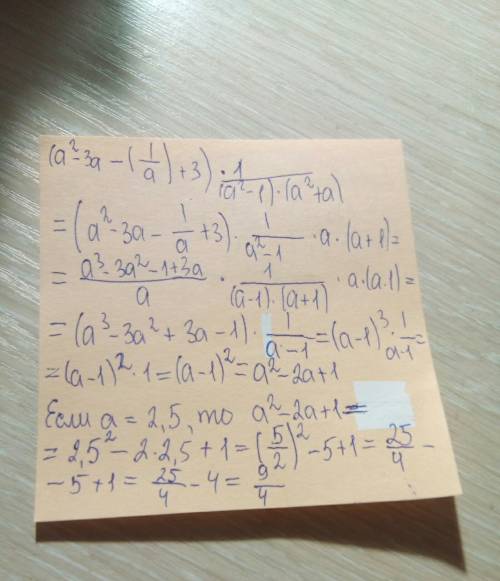 (a²-3a-(1/a)+3)·1/(a²-1)·(a²+a)
=(a²-3a-1/a+3)·1/a²-1·a·(a+1)=
=a³-3a²-1+3a/a·1/(a-1)·(a+1)·a·(a.1)=
=(a³-3a²+3a-1)·1/a-1=(a-1)³·1/a-1=
=(a-1)²·1=(a-1)²=a²-2a+1
Если a=2,5, то a²-2a+1=
=2,5²-2·2,5+1=(5/2)²-5+1=25/4-
-5+1=25/4-4=9/4